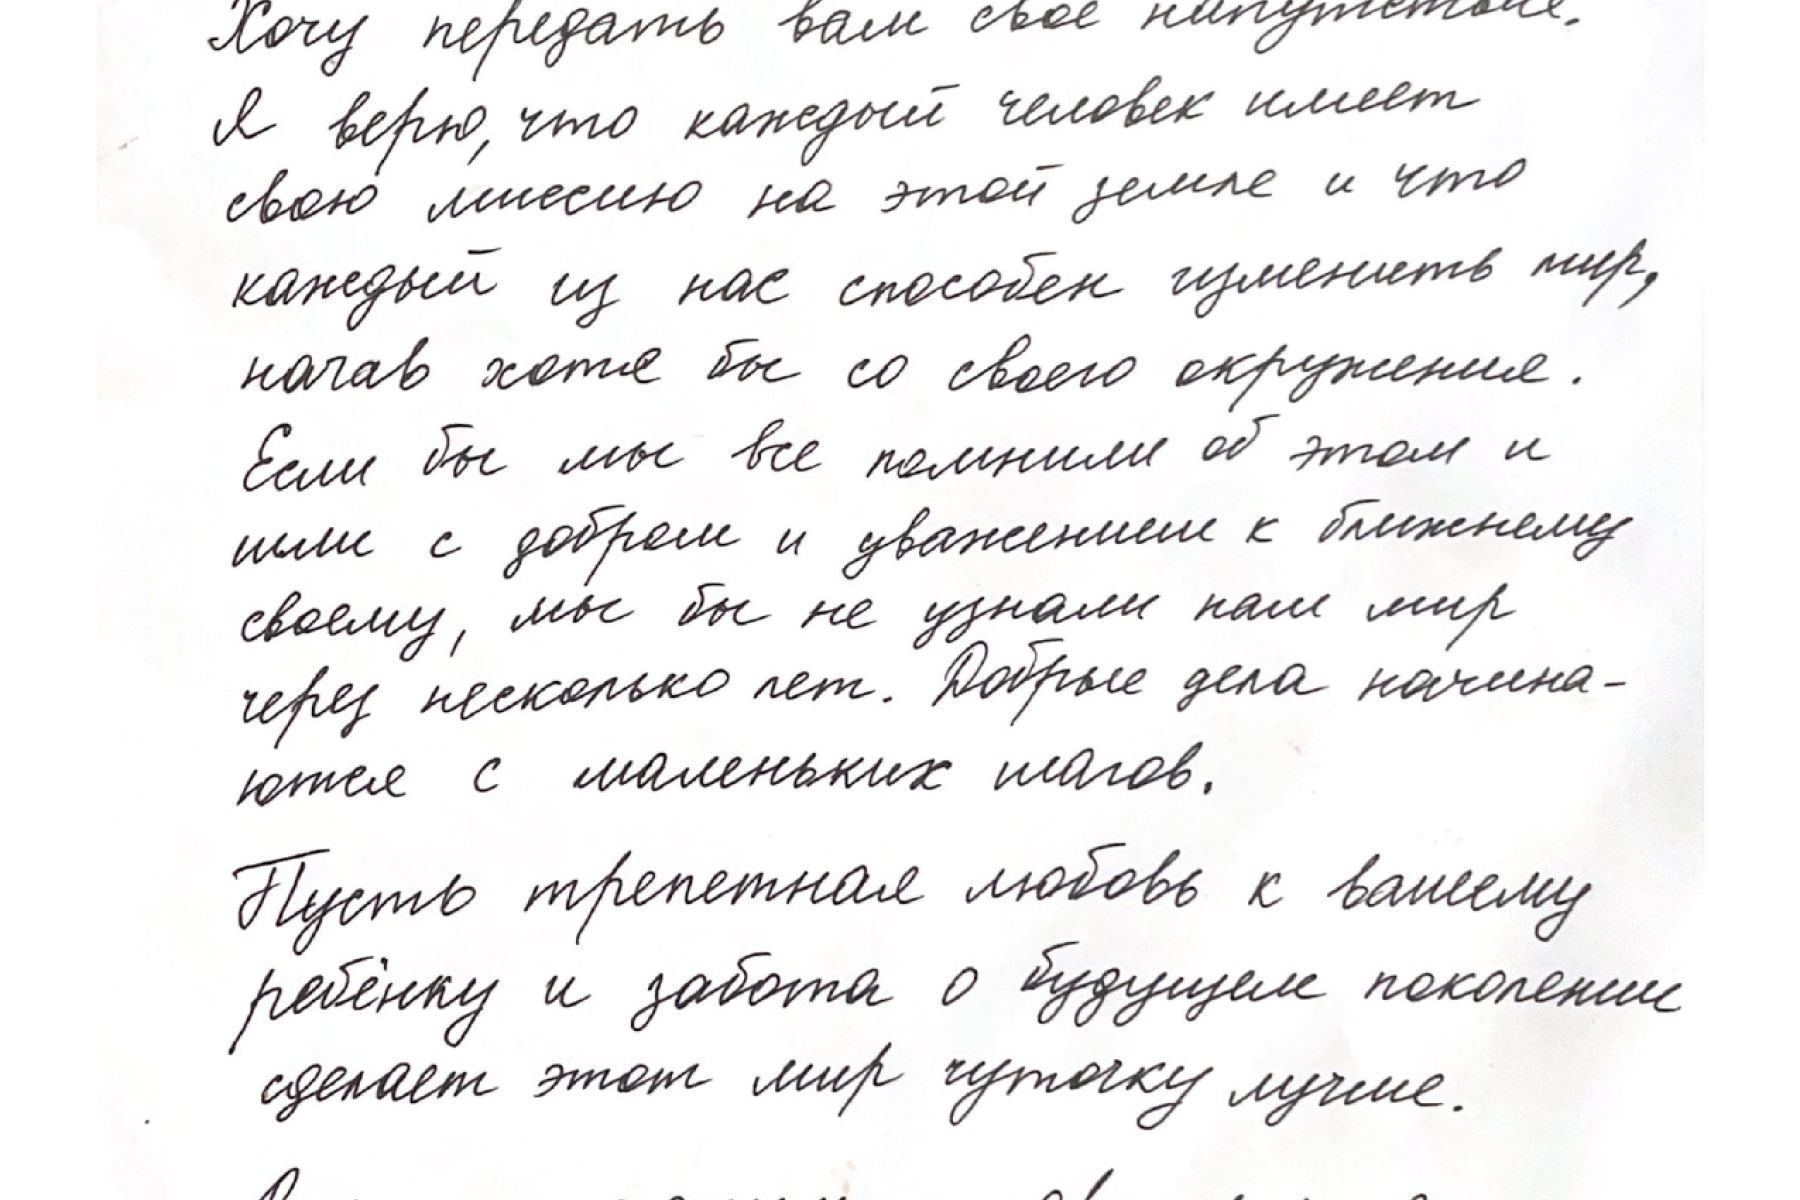 Хочу передать вам своё напутствие.
Я верю, что каждый человек имеет
свою миссию на этой земле и что
каждый из нас способен изменить мир,
начав хотя бы со своего окружения.
Если бы мы все помнили об этом и
шли с добром и уважением к ближнему
своему, мы бы не узнали наш мир
через несколько лет. Добрые дела начина-
ются с маленьких шагов.
Пусть трепетная любовь к вашему
ребёнку и забота о будущем поколении
сделает этот мир чуточку лучше.